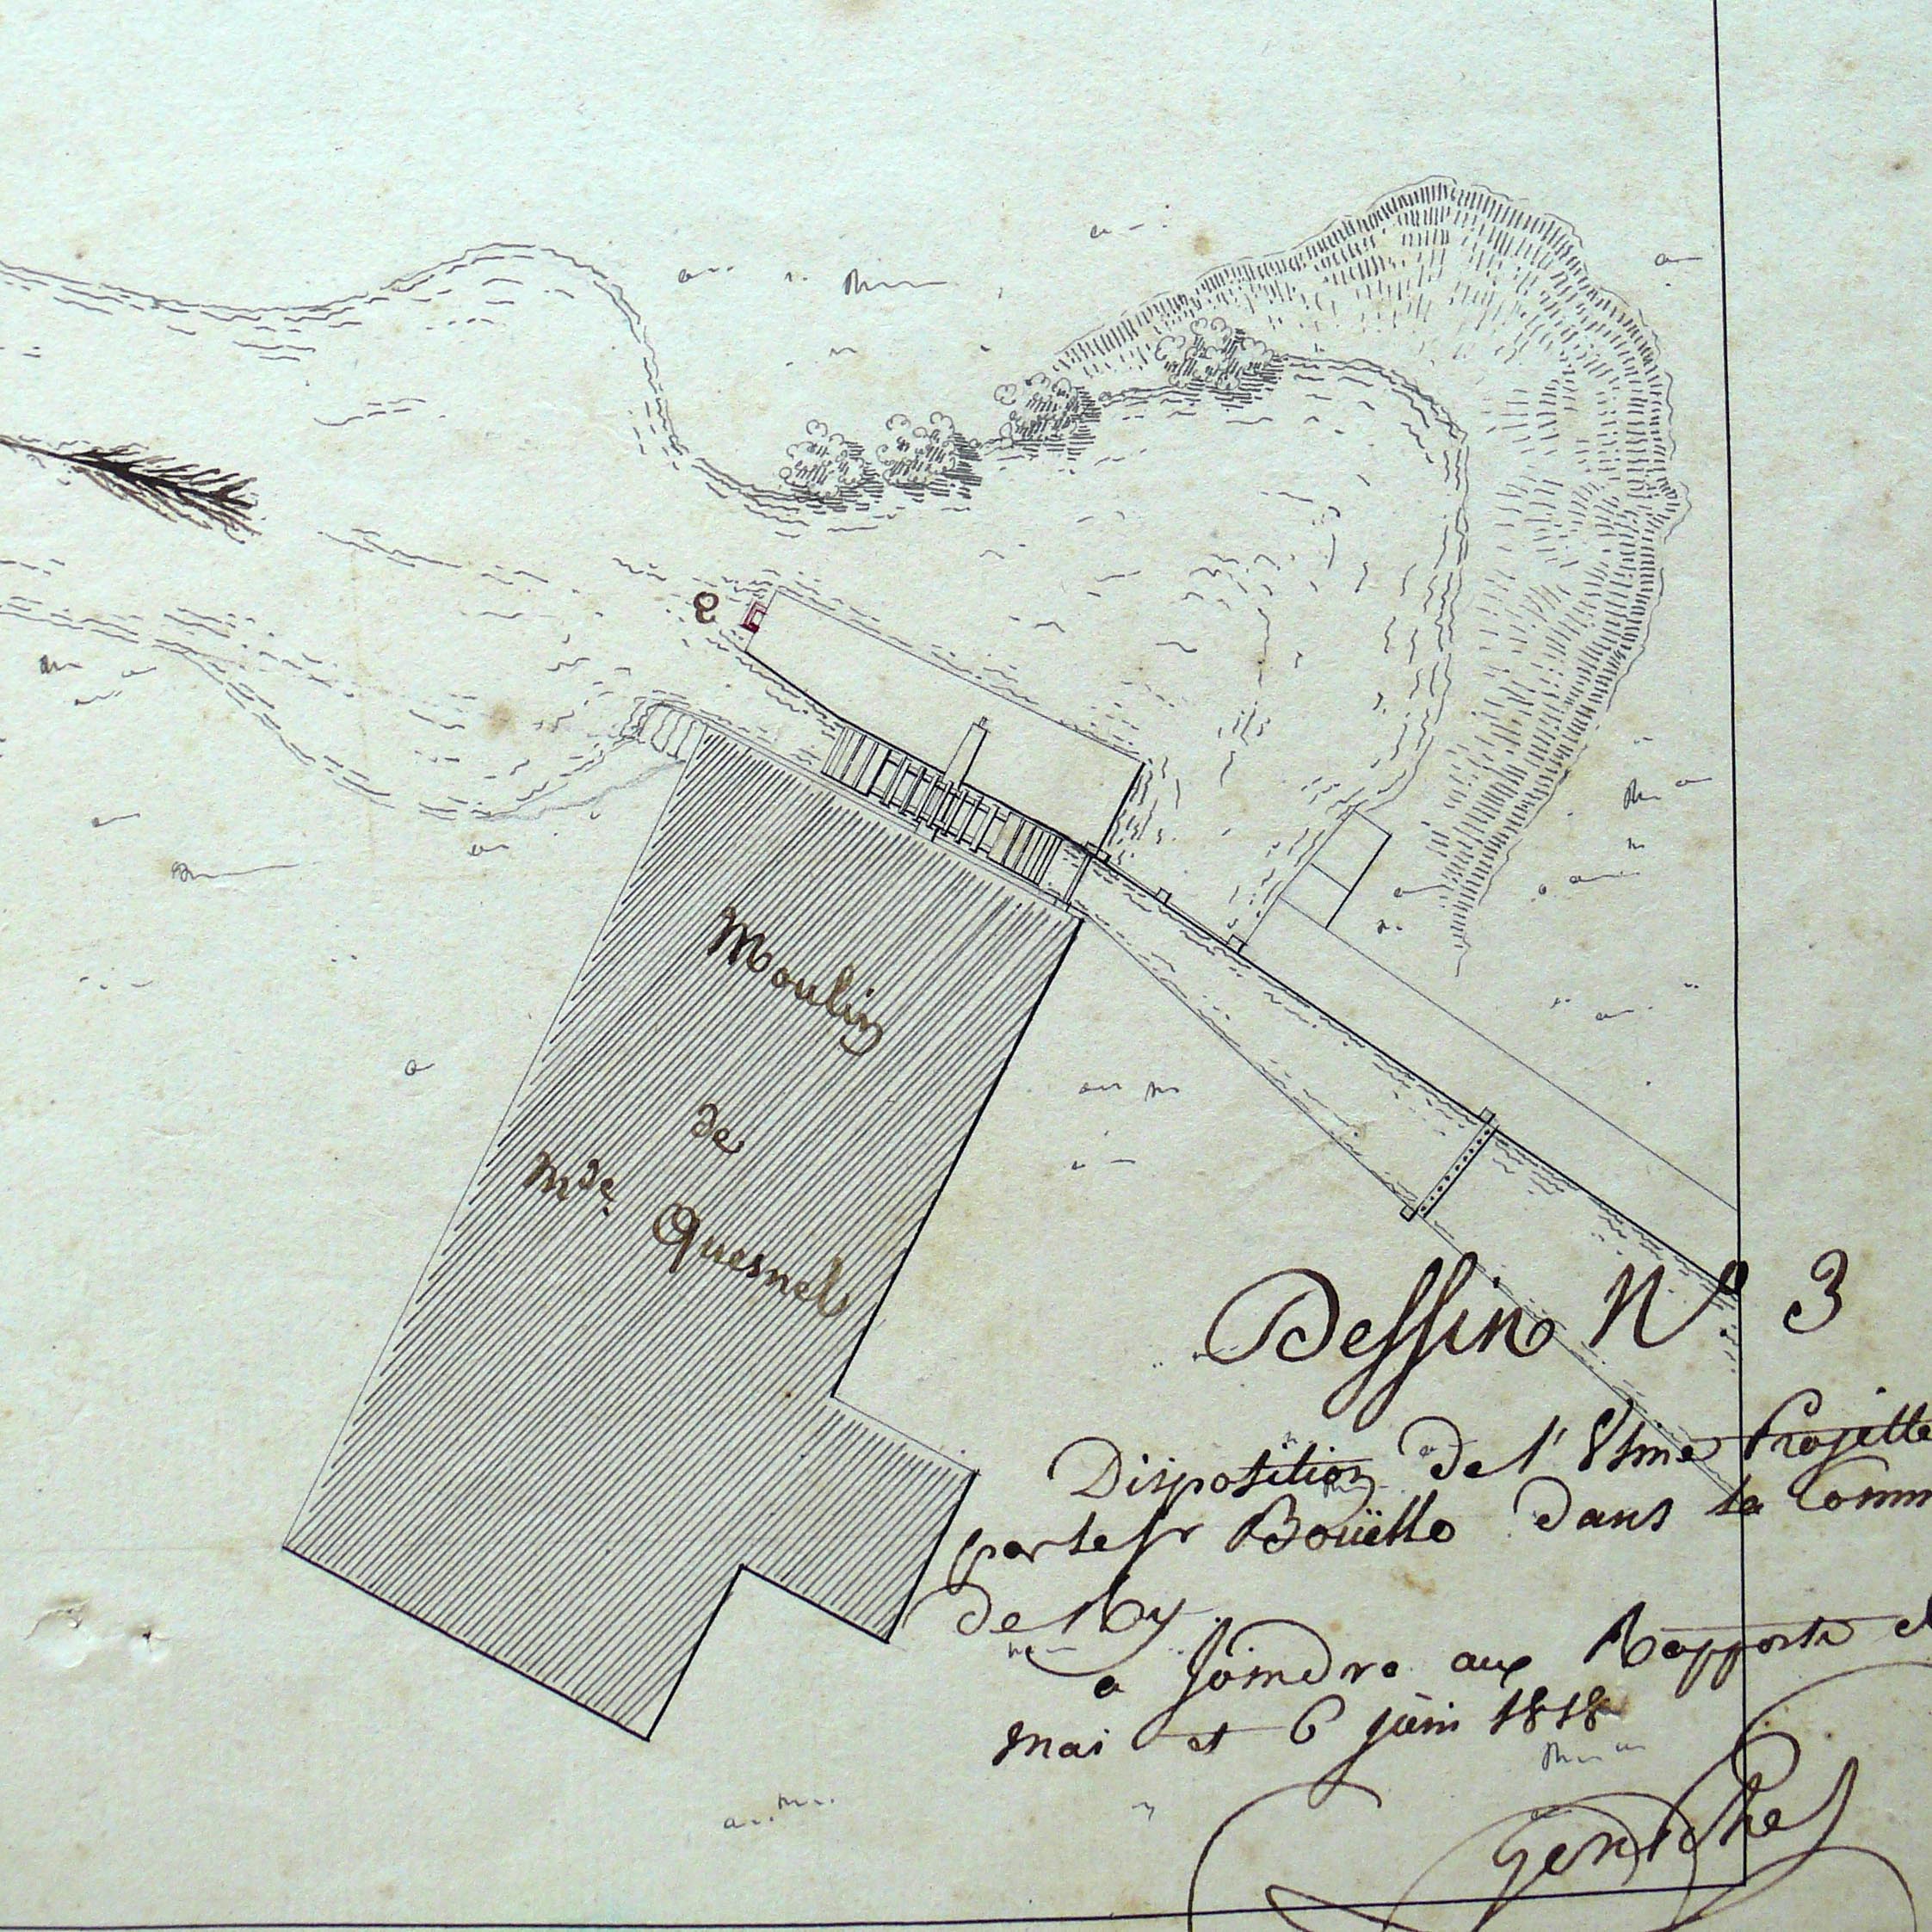 e
Moulin
de
Mde. Quesnel
Dessin No. 3
Disposition de l'Usine Projettée
par le Sr Bouëlle dans la Comm
de Ry
a Joindre aux Rapports
mai et 6 juin 1818